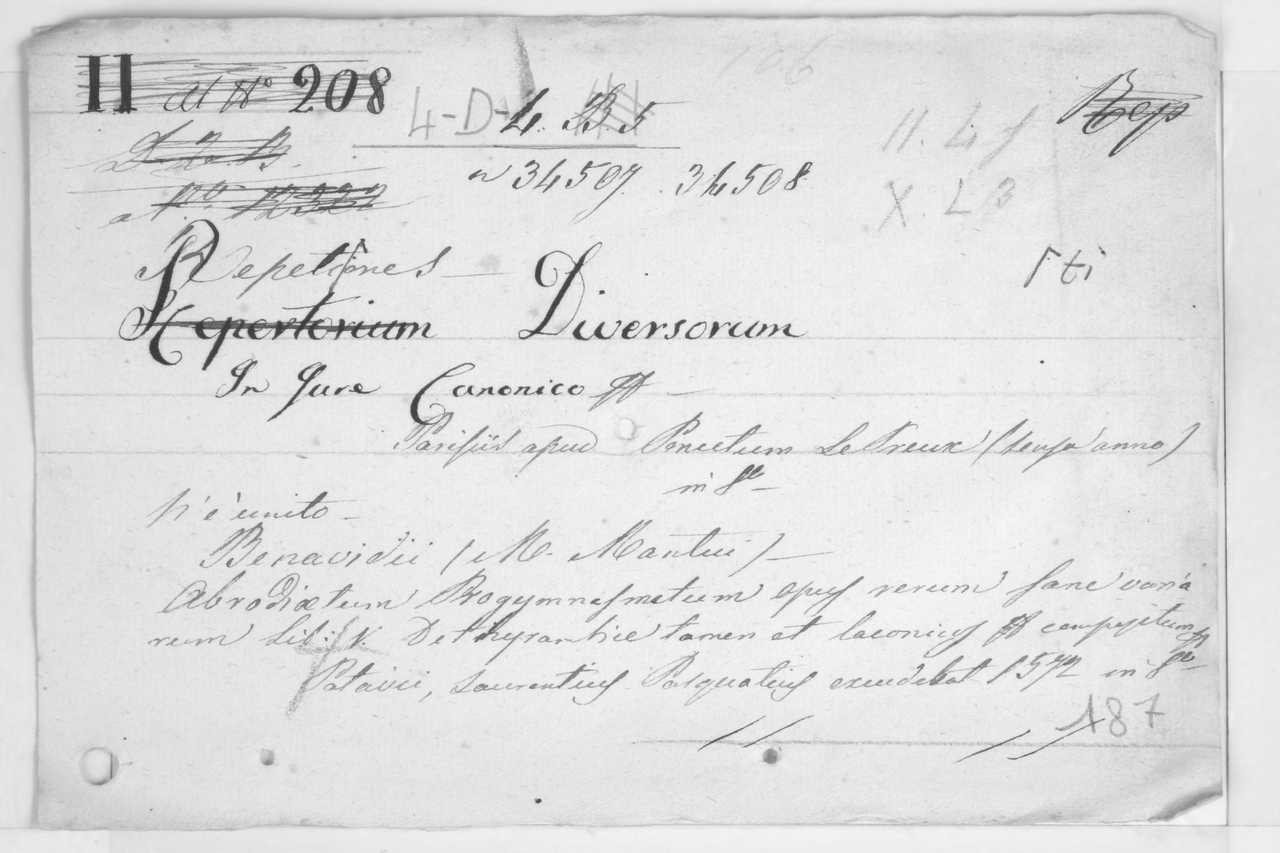 II 208
4-D-4. B 5
n 34507. 34508
Rep
II. L f
X. L 3
Repetiones — 
Repertorium Diversorum
In Jure Canonico
Parisiis apud Poncetum Le Preux (senza anno)
in 8º
V'è unito
Benavidii (M. Mantui) —
Abrodiætum Progymnasmatum opus rerum sane varia
rum Lib: V. Dethyrambice tamen et laconicus compositum
Patavii, Laurentius Pasquatus excudebat 1572 in 8º
187